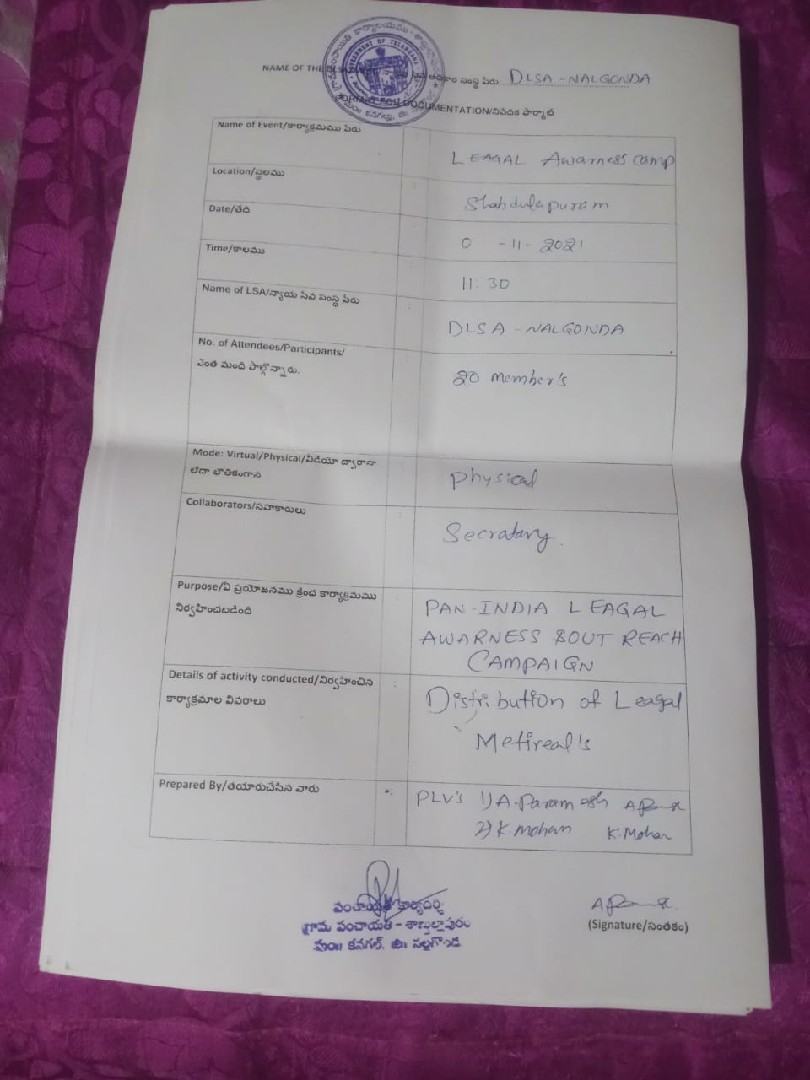 NAME OF THE
సంస్థ పేరు DLSA - NALGONDA
DOCUMENTATION/నివేదిక ఫార్మాట్
Name of Event/కార్యక్రమము పేరు : LEAGAL Awarness camp
Location/స్థలము : Shabdulapuram
Date/తేది : 0 -11- 2021
Time/కాలము : 11:30
Name of LSA/న్యాయ సేవ సంస్థ పేరు : DLSA - NALGONDA
No. of Attendees/Participants/
ఎంత మంది పాల్గొన్నారు. : 20 member's
Mode: Virtual/Physical/వీడియో ద్వారానా
లేదా భౌతికంగాన : physical
Collaborators/సహకారులు : Secratary.
Purpose/ఏ ప్రయోజనము క్రింద కార్యక్రమము
నిర్వహించబడింది : PAN-INDIA LEAGAL
AWARNESS &OUT REACH
CAMPAIGN
Details of activity conducted/నిర్వహించిన
కార్యక్రమాల వివరాలు : Distribution of Leagal
Metireal's
Prepared By/తయారుచేసిన వారు : PLV's 1) A. Paramesh
2) K Mohan K. Mohan
పంచాయతీ కార్యదర్శి
గ్రామ పంచాయతి - శాబ్దుల్లాపురం
మం॥ కనగల్, జి॥ నల్లగొండ
(Signature/సంతకం)